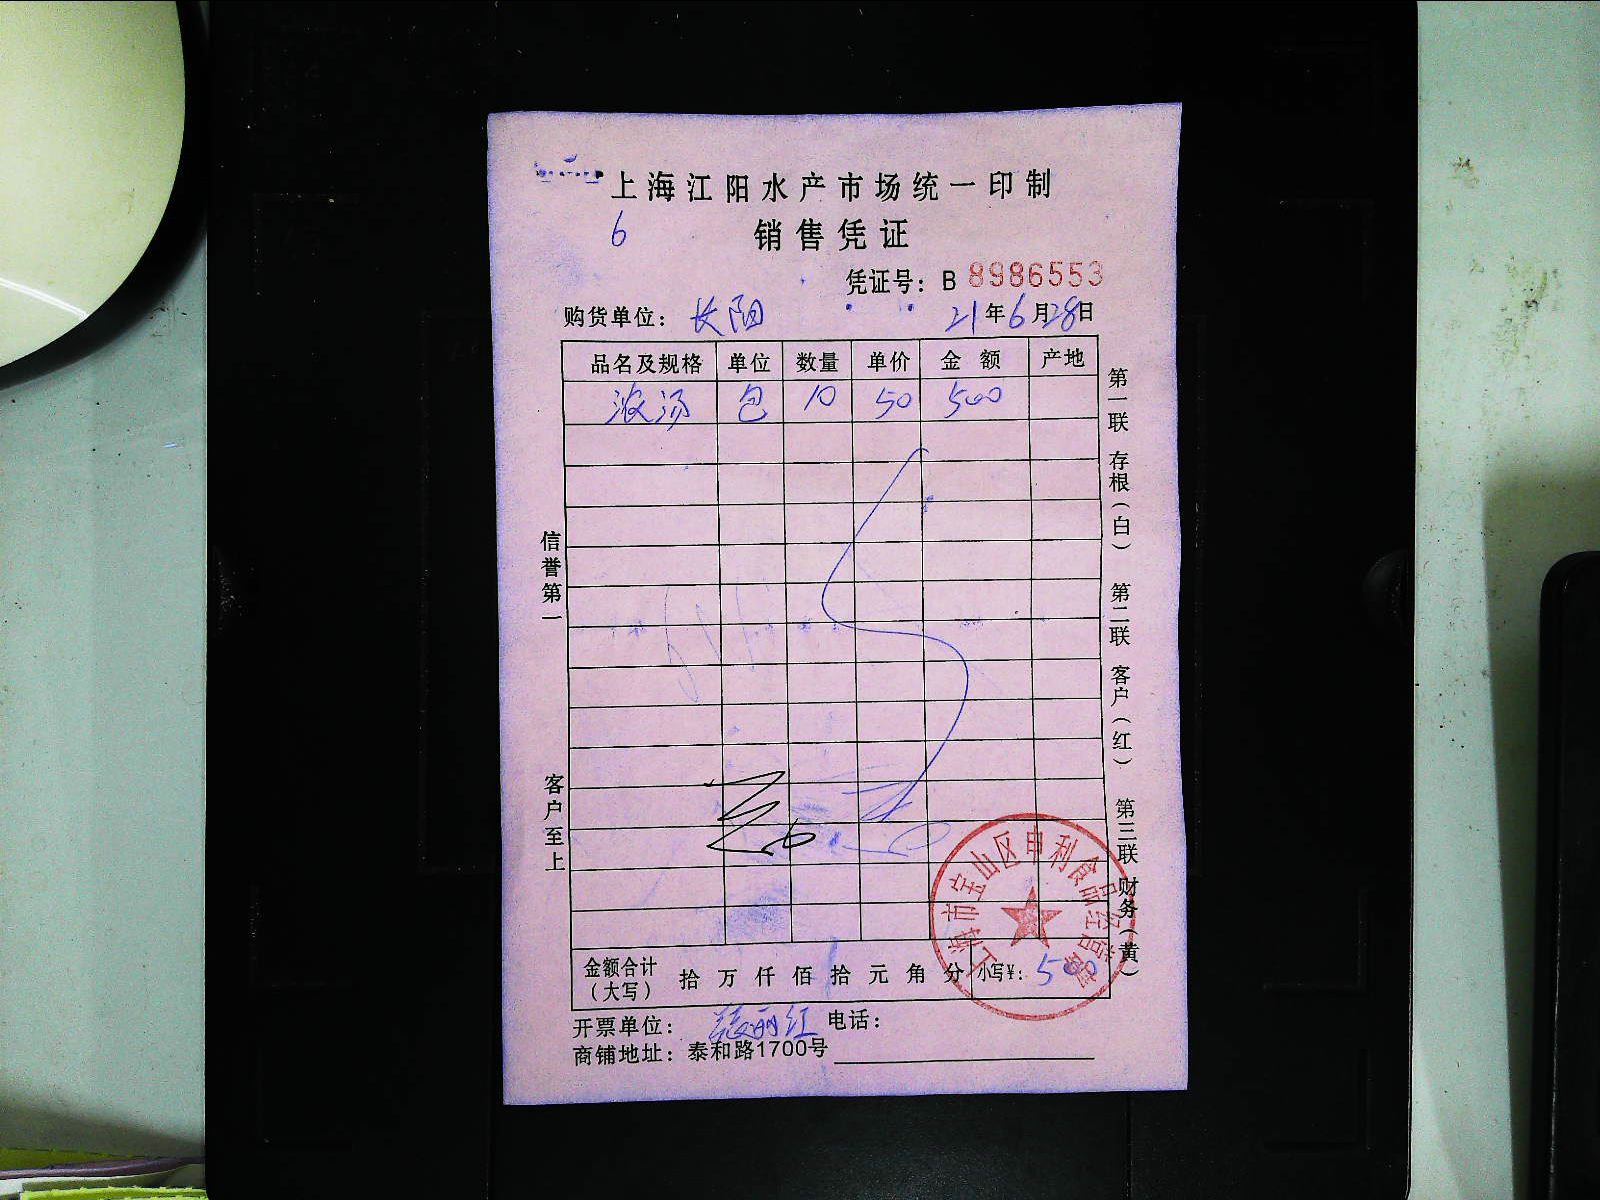 上海江阳水产市场统一印制
6
销售凭证
凭证号：B 8986553
购货单位：长阳 21年6月28日
品名及规格 单位 数量 单价 金额 产地
浓汤 包 10 50 500
信誉第一
客户至上
第一联 存根（白） 第二联 客户（红） 第三联 财务（黄）
上海市宝山区申利食品经营部
金额合计（大写） 拾万仟佰拾元角分 小写¥：500
开票单位： 丽红 电话：
商铺地址：泰和路1700号